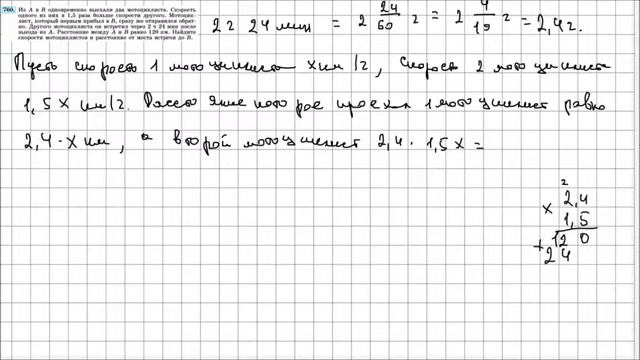 760. Из А в В одновременно выехали два мотоциклиста. Скорость
одного из них в 1,5 раза больше скорости другого. Мотоцик-
лист, который первым прибыл в В, сразу же отправился обрат-
но. Другого мотоциклиста он встретил через 2 ч 24 мин после
выезда из А. Расстояние между А и В равно 120 км. Найдите
скорости мотоциклистов и расстояние от места встречи до В.
2 ч 24 мин = 2 24/60 ч = 2 4/10 ч = 2,4 ч.
Пусть скорость 1 мотоциклиста x км/ч, скорость 2 мотоциклиста
1,5 x км/ч. Расстояние которое проехал 1 мотоциклист равно
2,4 · x км, а второй мотоциклист 2,4 · 1,5 x =
2
× 2,4
1,5
+ 12 0
24